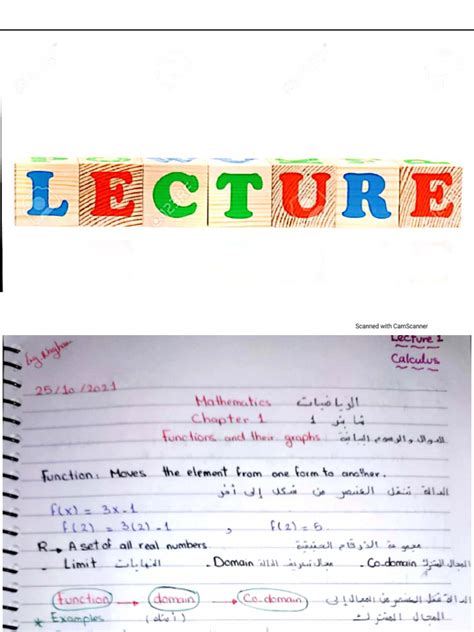 LECTURE
Scanned with CamScanner
Lecture 1
Calculus
25/10/2021
Mathematics الرياضيات
Chapter 1 چابتر 1
Functions and their graphs الدوال والرسوم البيانية
Function: Moves the element from one form to another.
الدالة تنقل العنصر من شكل إلى آخر
f(x) = 3x-1
f(2) = 3(2)-1 , f(2) = 5.
R → A set of all real numbers. مجموعة الحقيقية
- Limit النهايات - Domain مجال الدالة - Co-domain المجال
function → domain → Co-domain الدالة تنقل العنصر من المجال إلى
* Examples (أمثلة) المجال